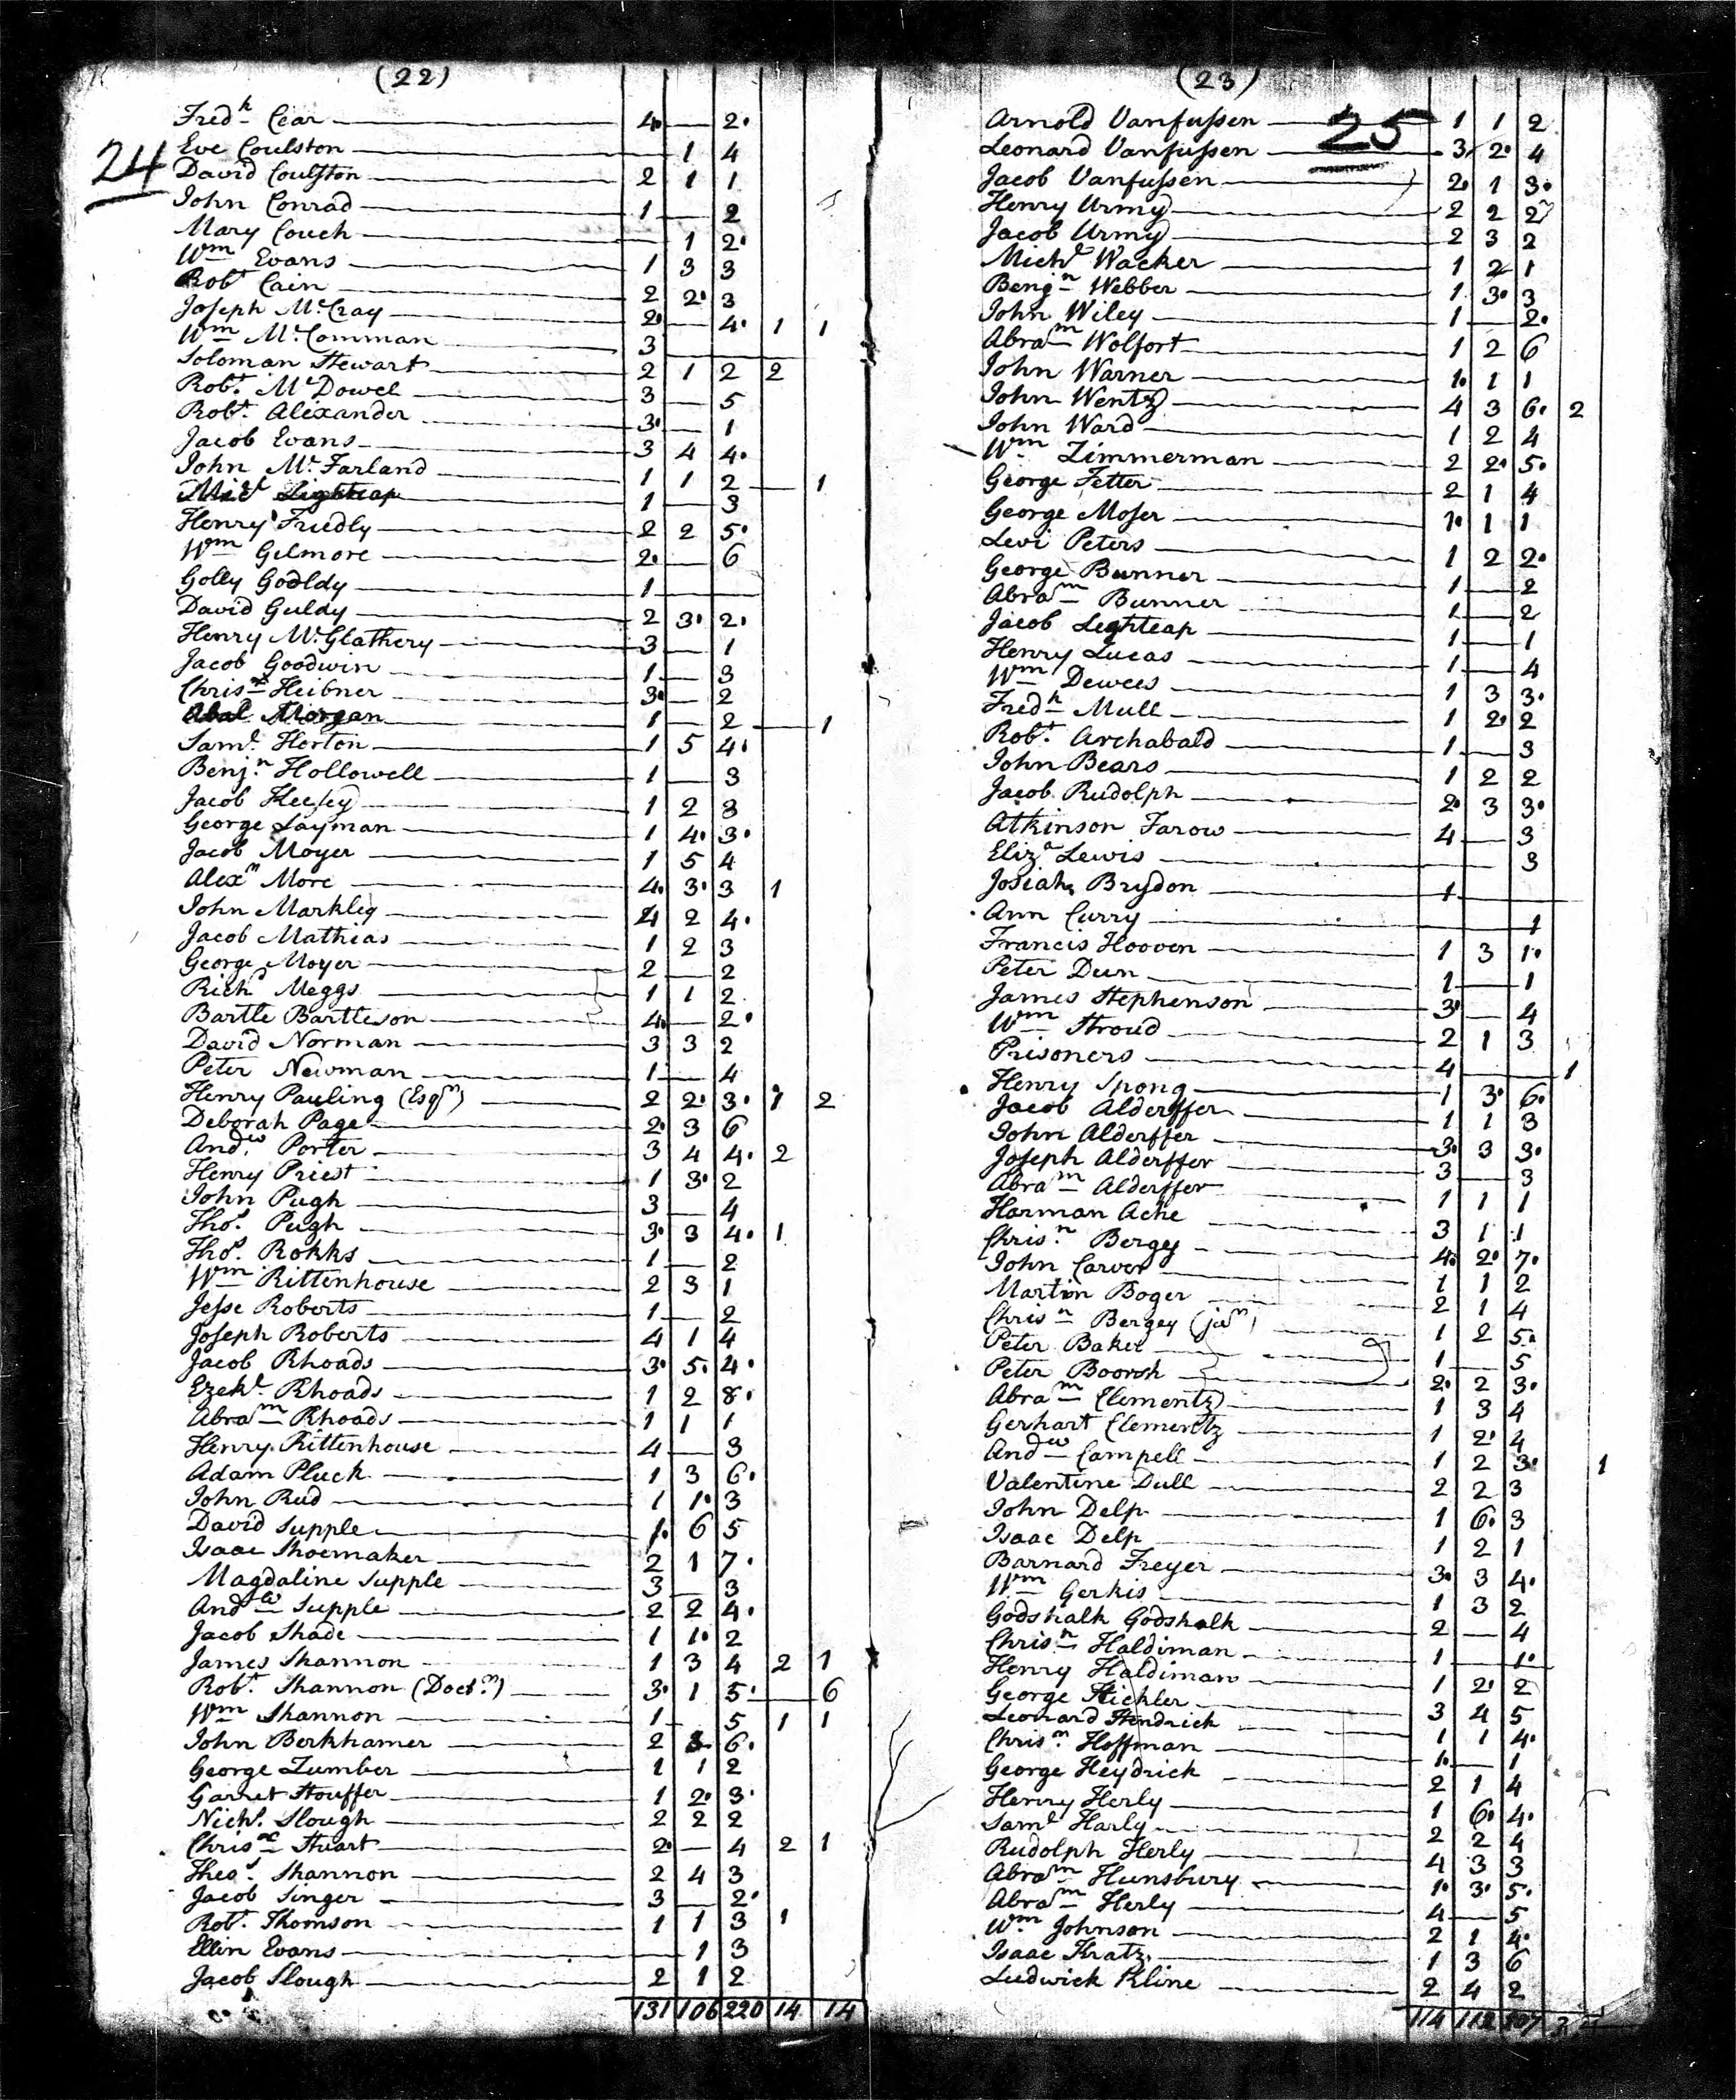 (22)
24
Fredh Cear 4. — 2.
Eve Coulston — 1 4
David Coulston 2 1 1
John Conrad 1 — 2
Mary Couch — 1 2.
Wm Evans 1 3 3
Robt Cain 2 2. 3
Joseph McCray 2. — 4. 1 1
Wm McComman 3 —
Soloman Stewart 2 1 2 2
Robt. McDowel 3 — 5
Robt. Alexander 3. — 1
Jacob Evans 3 4 4.
John McFarland 1 1 2 — 1
Micl Lightcap 1 — 3
Henry Friedly 2 2 5.
Wm Gilmore 2. — 6
Golly Godldy 1 —
David Guldy 2 3. 2.
Henry McGlathery 3 — 1
Jacob Goodwin 1 — 3
Chrisr Heibner 3. — 2
Abal Morgan 1 — 2 — 1
Saml. Horton 1 5 4.
Benjn Hollowell 1 — 3
Jacob Keesey 1 2 3
George Layman 1 4. 3.
Jacob Moyer 1 5 4
Alexr More 4. 3. 3 1
John Markley 4 2 4.
Jacob Mathias 1 2 3
George Moyer 2 — 2
Richd Meggs 1 1 2
Bartle Bartleson 4. — 2.
David Norman 3 3 2
Peter Newman 1 — 4
Henry Pauling (Esqr) 2 2. 3. 1 2
Deborah Page 2. 3 6
Andw. Porter 3 4 4. 2
Henry Priest 1 3. 2
John Pugh 3 — 4
Thos. Pugh 3. 3 4. 1
Thos. Rokks 1 — 2
Wm Rittenhouse 2 3 1
Jesse Roberts 1 — 2
Joseph Roberts 4 1 4
Jacob Rhoads 3. 5. 4.
Ezekl. Rhoads 1 2 8.
Abram Rhoads 1 1 1
Henry Rittenhouse 4 — 3
Adam Pluck 1 3 6.
John Rud 1 1. 3
David Supple 1. 6 5
Isaac Shoemaker 2 1 7.
Magdaline Supple 3 — 3
Andw Supple 2 2 4.
Jacob Shade 1 1. 2
James Shannon 1 3 4 2 1
Robt. Shannon (Doctr) 3. 1 5. — 6
Wm Shannon 1 — 5 1 1
John Berkhamer 2 3 6.
George Zumber 1 1 2
Garret Stouffer 1 2. 3.
Nichs. Slough 2 2 2
Chrisr Stuart 2. — 4 2 1
Thos. Shannon 2 4 3
Jacob Singer 3 — 2.
Robt. Thomson 1 1 3 1
Ellin Evans — 1 3
Jacob Slough 2 1 2
131 106 220 14 14
(23)
25
Arnold Vanfussen 1 1 2
Leonard Vanfussen 3 2. 4
Jacob Vanfussen 2. 1 3.
Henry Urmy 2 2 2
Jacob Urmy 2 3 2
Michl Wacker 1 2 1
Benjn Webber 1 3. 3
John Wiley 1 — 2.
Abram Wolfort 1 2 6
John Warner 1. 1 1
John Wentz 4 3 6. 2
John Ward 1 2 4
Wm Zimmerman 2 2. 5.
George Fetter 2 1 4
George Moser 1. 1 1
Levi Peters 1 2 2.
George Bunner 1 — 2
Abram Bunner 1 — 2
Jacob Lightcap 1 — 1
Henry Lucas 1 — 4
Wm Dewees 1 3 3.
Fredh Mull 1 2. 2
Robt. Archabald 1 — 3
John Bears 1 2 2
Jacob Rudolph 2. 3 3.
Atkinson Farow 4 — 3
Eliza Lewis — 3
Josiah Brydon 1 —
Ann Curry — 1
Francis Hooven 1 3 1.
Peter Dun 1 — 1
James Stephenson 3. — 4
Wm Stroud 2 1 3
Prisoners 4 — 1
Henry Spong 1 3. 6.
Jacob Alderffer 1 1 3
John Alderffer 3. 3 3.
Joseph Alderffer 3 — 3
Abram Alderffer 1 1 1
Harman Ache 3 1 1
Chrisn. Bergey 4. 2. 7.
John Carver 1 1 2
Martin Boger 2 1 4
Chrisn Bergey (jur) 1 2 5.
Peter Baker 1 — 5
Peter Boorsh 2. 2 3.
Abram Clementz 1 3 4
Gerhart Clementz 1 2. 4
Andw Campell 1 2 3. 1
Valentine Dull 2 2 3
John Delp 1 6. 3
Isaac Delp 1 2 1
Barnard Freyer 3. 3 4.
Wm Gerkis 1 3 2
Godshalk Godshalk 2 — 4
Chrisn Haldiman 1 — 1.
Henry Haldiman 1 2. 2
George Hickler 3 4 5
Leonard Hendrick 1 1 4.
Chrisn. Hoffman 1. — 1
George Heydrick 2 1 4
Henry Herly 1 6. 4.
Saml Harly 2 2 4
Rudolph Herly 4 3 3
Abram Hunsbury 1. 3. 5.
Abram Herly 4 — 5
Wm Johnson 2 1 4.
Isaac Kratz 1 3 6
Ludwick Kline 2 4 2
114 112 207